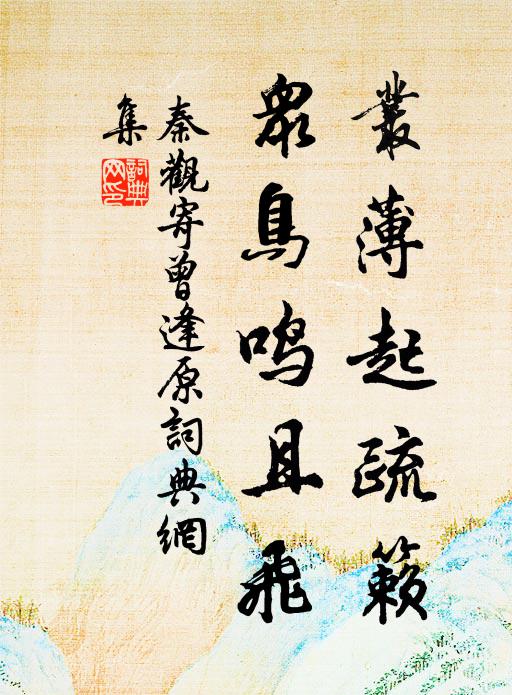 叢薄起疏籟
眾鳥鳴且飛
秦觀寄曾逢原詞典網
集
詞典網印